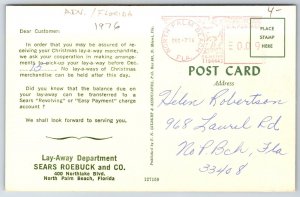 ADV. / FLORIDA
1976
4-
Dear Customer:
In order that you may be assured of re-
ceiving your Christmas lay-a-way merchandise,
we ask your cooperation in making arrange-
ments to pick-up your lay-a-way before Dec.
15. No lay-a-ways of Christmas
merchandise can be held after this day.
Did you know that the balance due on
your lay-away can be transferred to a
Sears "Revolving" or "Easy Payment" charge
account?
We shall look forward to serving you.
Lay-Away Department
SEARS ROEBUCK and CO.
400 Northlake Blvd.
North Palm Beach, Florida
FLA.
0.09
PLACE
STAMP
HERE
POST CARD
Address
Helen Robertson
968 Laurel Rd
No P Bch, Fla
33408